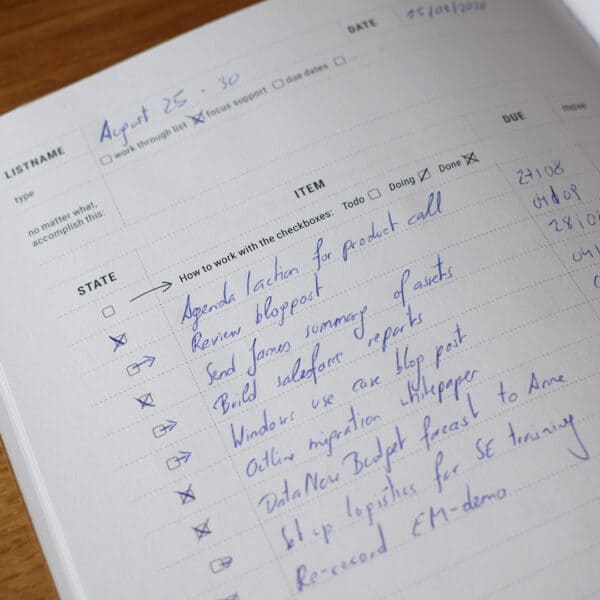 DATE 25/08/2020
LISTNAME August 25 - 30
type work through list focus support due dates ...
no matter what, accomplish this:
STATE ITEM DUE move
How to work with the checkboxes: Todo Doing Done
Agenda/action for product call 27/08
Review blogpost 01/09
Send James summary of assets 28/0
Build salesforce reports 04/
Windows use case blog post
Outline migration whitepaper
DataNow Budget forecast to Anne
Set up logistics for SE training
Re-record EM-demo